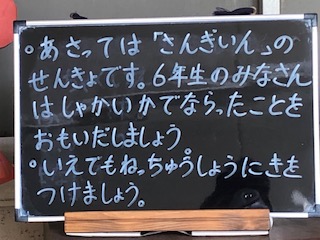 。あさっては「さんぎいん」の
せんきょです。6年生のみなさん
はしゃかいかでならったことを
おもいだしましょう。
。いえでもねっちゅうしょうにきを
つけましょう。